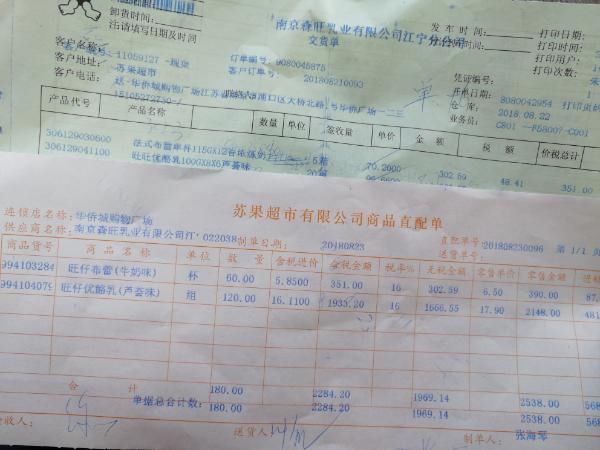 卸货时间:
(注)请填写日期及时间
南京森旺乳业有限公司江宁分公司
交货单
发车时间:
打印日期
打印时间:
打印用户
客户名称: 11059127 -现渠
客户地址: 苏果超市
客户电话:
订单编号: 9080045875
201808210093
凭证编号:
开单日期: 8080042954
仓库: 2018.08.22
业务员: C801
产品代号 产品名称 数量 单位 签收量 单价 金额 税额 价税总计
306129030600 70.2000 302.59 48.41 351.00
306129041100 旺旺优酪乳100GX8X6芦荟味
苏果超市有限公司商品直配单
连锁店名称: 华侨城购物广场
供应商名称: 南京森旺乳业有限公司江' 022038 制单日期: 20180823
直配单号: 201808230096 第 1/1 页
送货单号:
商品货号 商品名称 单位 数量 含税进价 含税金额 税率% 无税金额 零售单价 零售金额 进
994103284 旺仔布蕾(牛奶味) 杯 60.00 5.8500 351.00 16 302.59 6.50 390.00 87.
994104079 旺仔优酪乳(芦荟味) 组 120.00 16.1100 1933.20 16 1666.55 17.90 2148.00 481
合计 180.00 2284.20 1969.14 2538.00 568
单据总合计数: 180.00 2284.20 1969.14 2538.00 568
收人: 送货人: 制单人: 张海琴